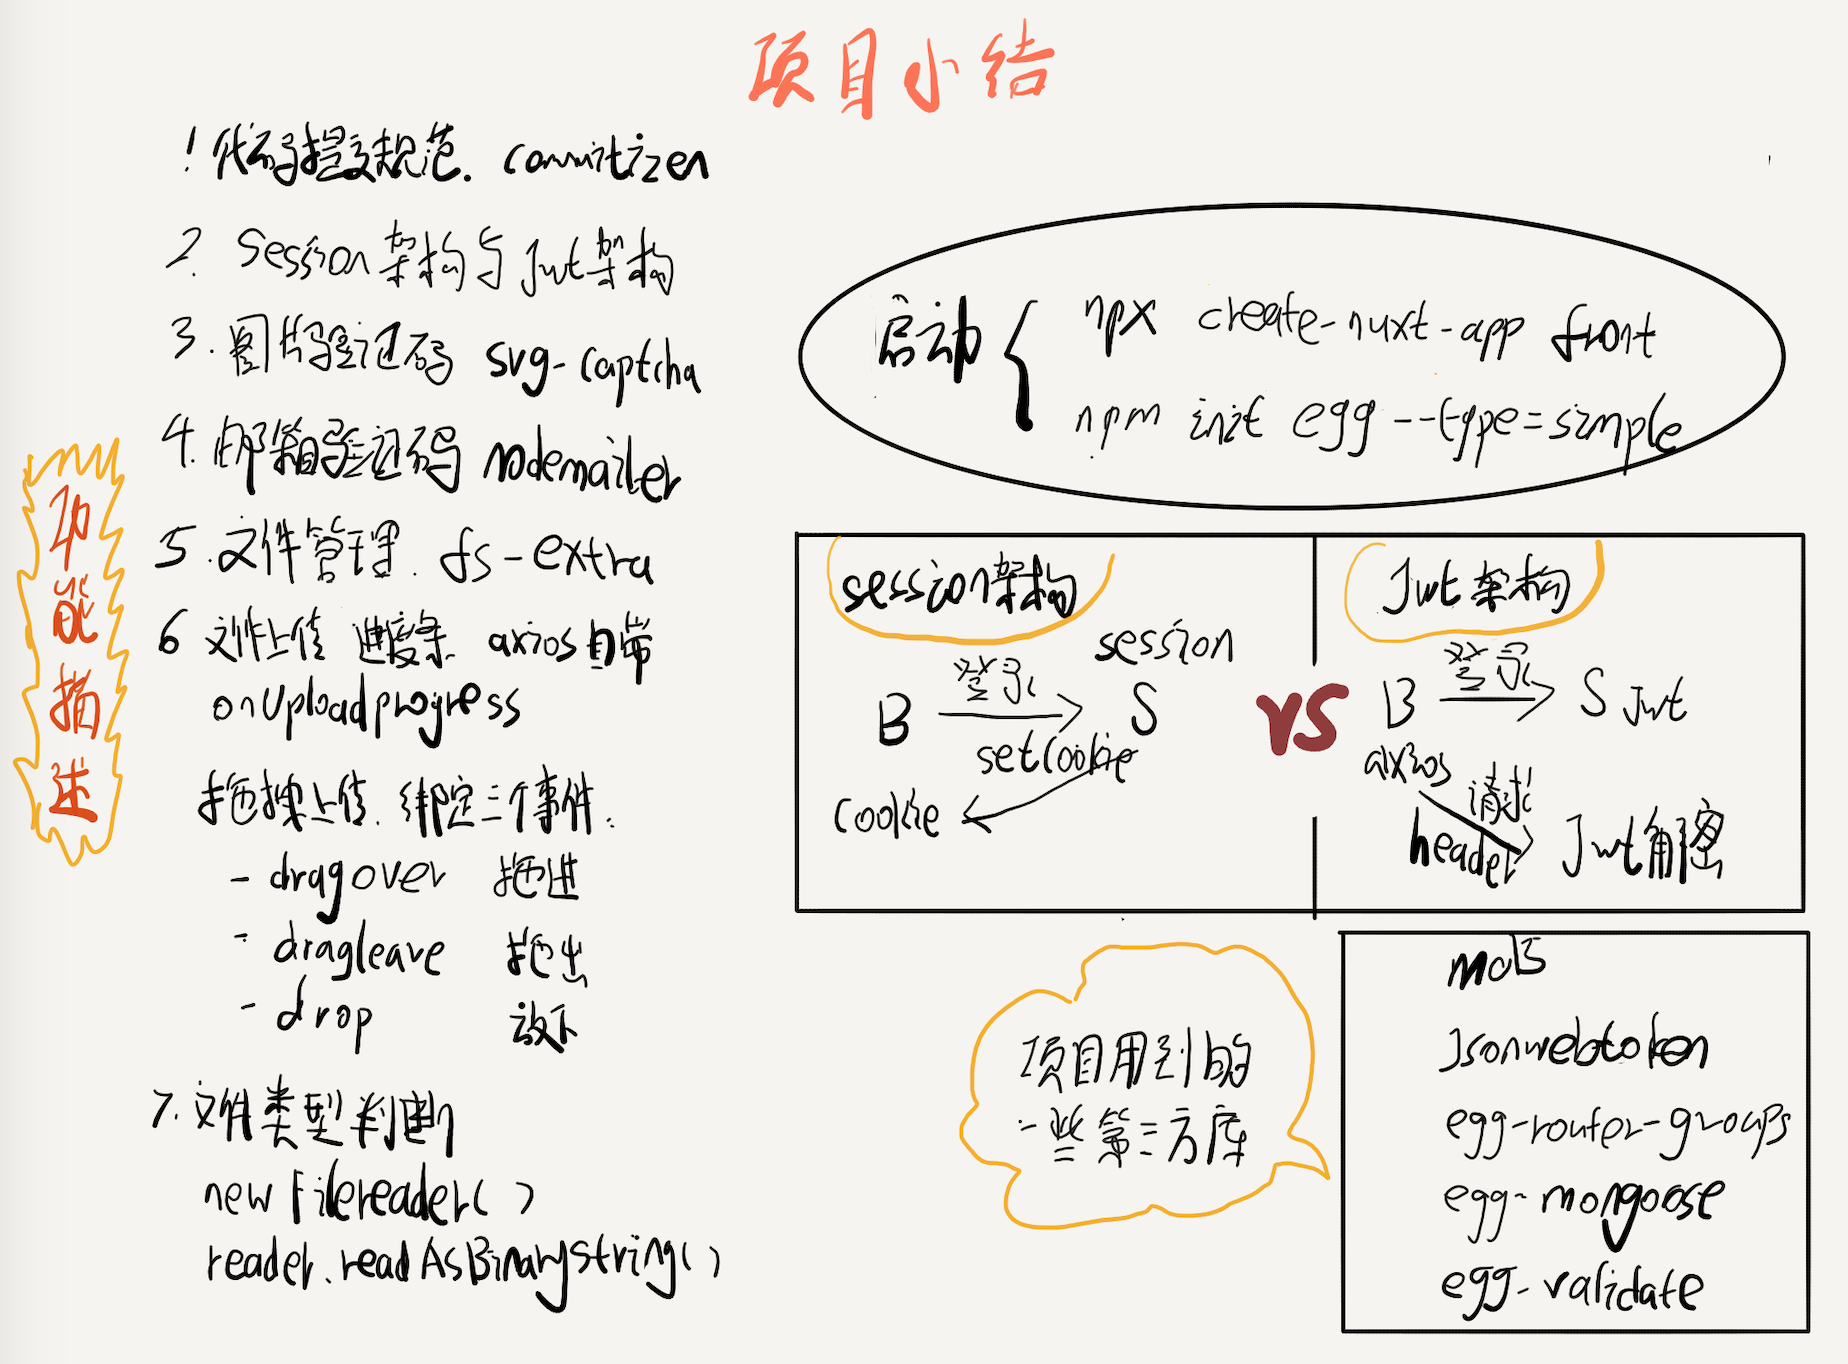 项目小结
功能描述
1 代码提交规范. commitizen
2. Session架构与Jwt架构
3. 图片验证码 svg-captcha
4. 邮箱验证码 nodemailer
5. 文件管理. fs-extra
6 文件上传 进度条. axios自带
onUploadprogress
拖拽上传. 绑定三个事件.
- dragover 拖进
- dragleave 拖出
- drop 放下
7. 文件类型判断
new Filereader()
reader.readAsBinarystring()
启动 {
npx create-nuxt-app front
npm init egg --type=simple
session架构
session
B 登录 S
setCookie
cookie
VS
Jwt架构
B 登录 S Jwt
axios
请求
header Jwt解密
项目用到的
一些第三方库
md5
Jsonwebtoken
egg-router-groups
egg-mongoose
egg-validate